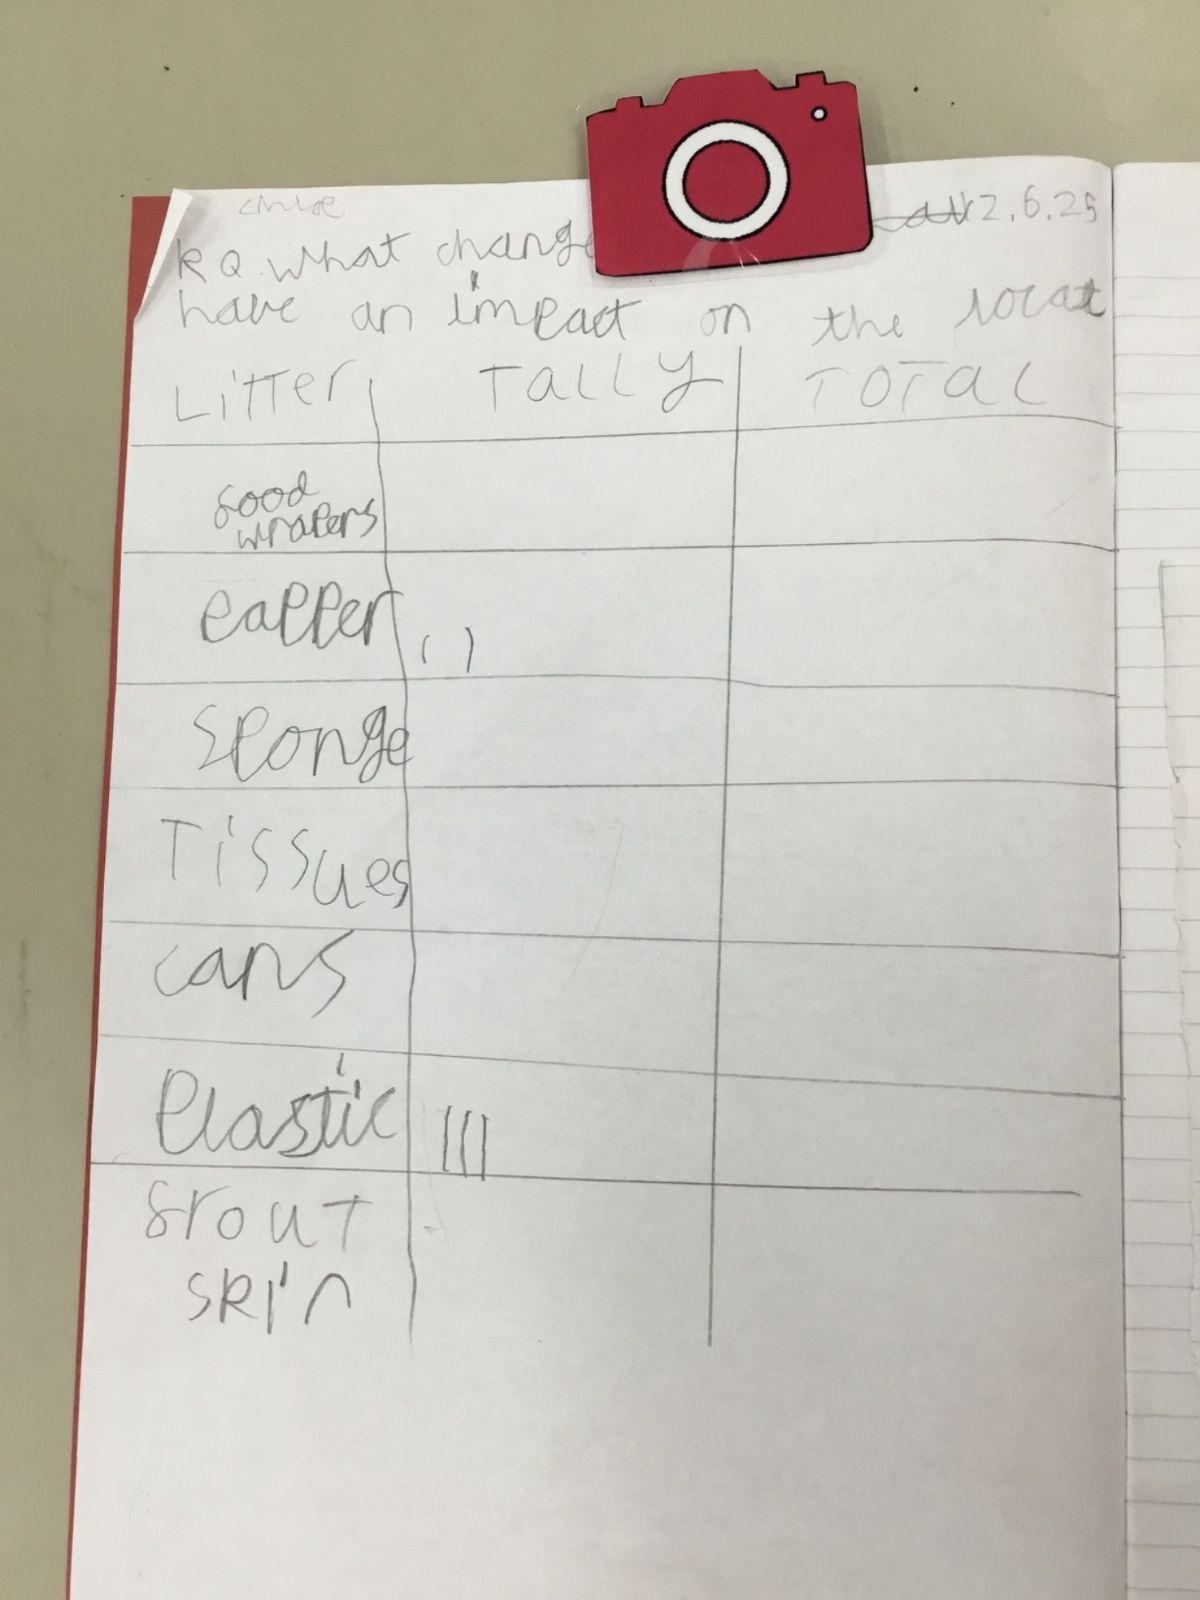 12.6.25
KQ. What change
have an impact on the local
Litter Tally Total
food
wrapers
papper
Sponge
Tissues
cans
Plastic
frout
skin